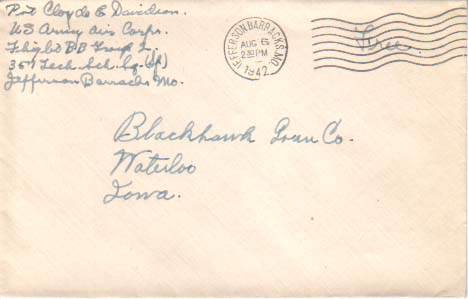 Pvt Cloyde E Davidson.
US Army Air Corps.
Flight BB Group I.
357 Tech. Sch. Sq. (Sp)
Jefferson Barracks Mo.
JEFFERSON BARRACKS, MO.
AUG 6
2:30 PM
1942
Free.
Blackhawk Loan Co.
Waterloo
Iowa.